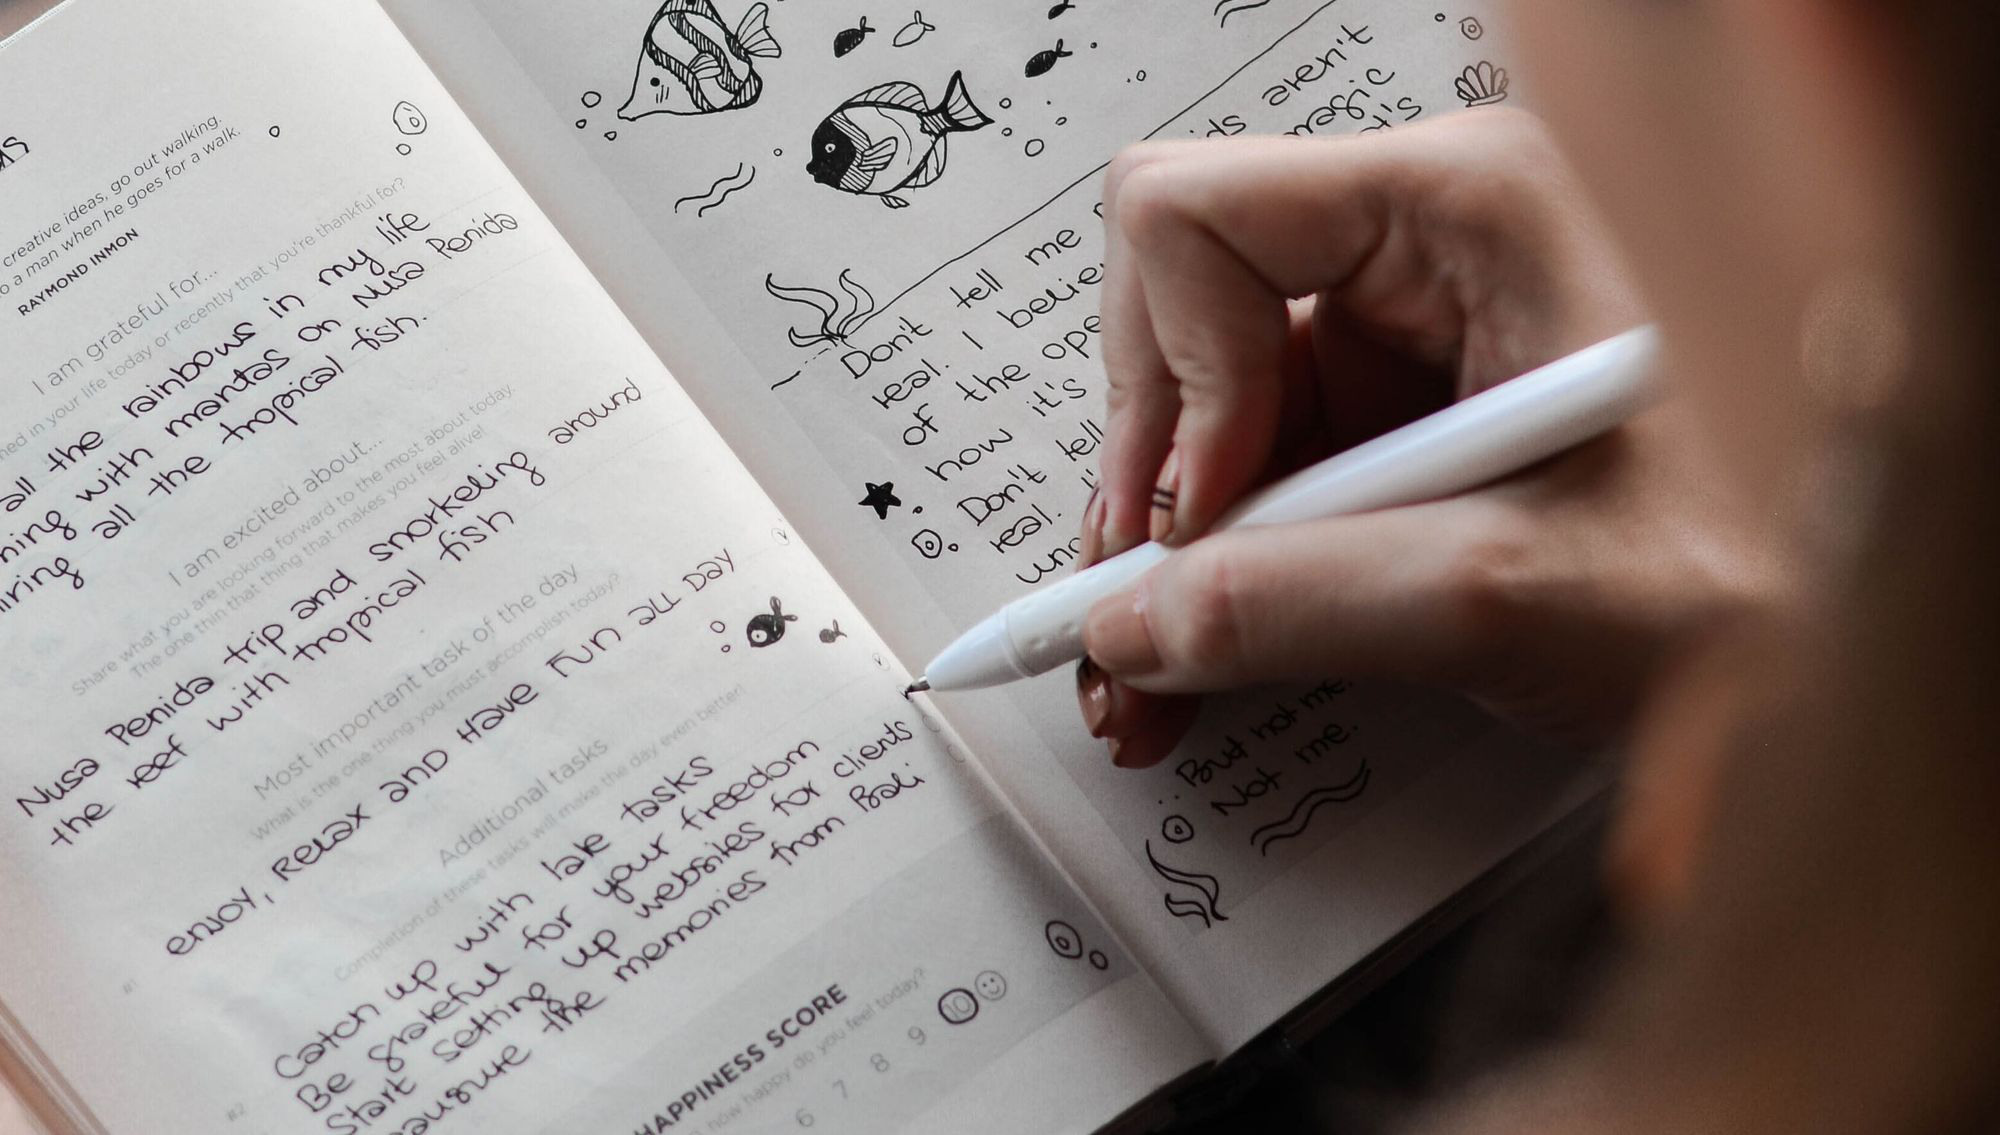 creative ideas, go out walking.
to a man when he goes for a walk.
RAYMOND INMON
I am grateful for...
in your life today or recently that you're thankful for?
all the rainbows in my life
with mantas on Nusa Penida
all the tropical fish.
I am excited about...
Share what you are looking forward to the most about today.
The one thin that thing that makes you feel alive!
Nusa Penida trip and snorkeling around
the reef with tropical fish
Most important task of the day
What is the one thing you must accomplish today?
ENJOY, RELAX AND HAVE FUN ALL DAY
Additional tasks
Completion of these tasks will make the day even better!
#1
Catch up with late tasks
Be grateful for your freedom
#2
Start setting up websites for clients
the memories from Bali
HAPPINESS SCORE
how happy do you feel today?
6 7 8 9 10
aren't
magic
Don't tell me
real. I
of the
how it's
Don't tell
real.
But not me.
Not me.